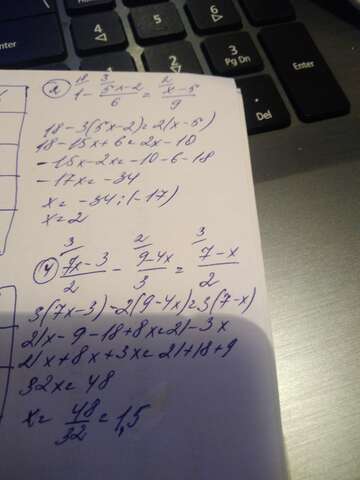 6
5
4
3
Pg Dn
2
.
Del
2) 18 3 2
1 - 5x-2/6 = x-5/9
18-3(5x-2)=2(x-5)
18-15x+6=2x-10
-15x-2x=-10-6-18
-17x=-34
x=-34:(-17)
x=2
4) 3 2 3
7x-3/2 - 9-4x/3 = 7-x/2
3(7x-3)-2(9-4x)=3(7-x)
21x-9-18+8x=21-3x
21x+8x+3x=21+18+9
32x=48
x=48/32=1,5